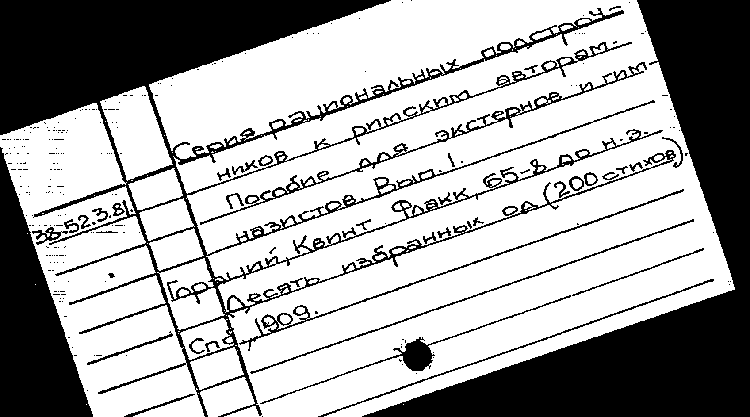 Серия рациональных подстроч-
ников к римским авторам.
Пособие для экстернов и гим-
38.52.3.81.
назистов. Вып. 1.
Гораций, Квинт Флакк, 65-8 до н.э.
Десять избранных од (200 стихов).
Спб., 1909.